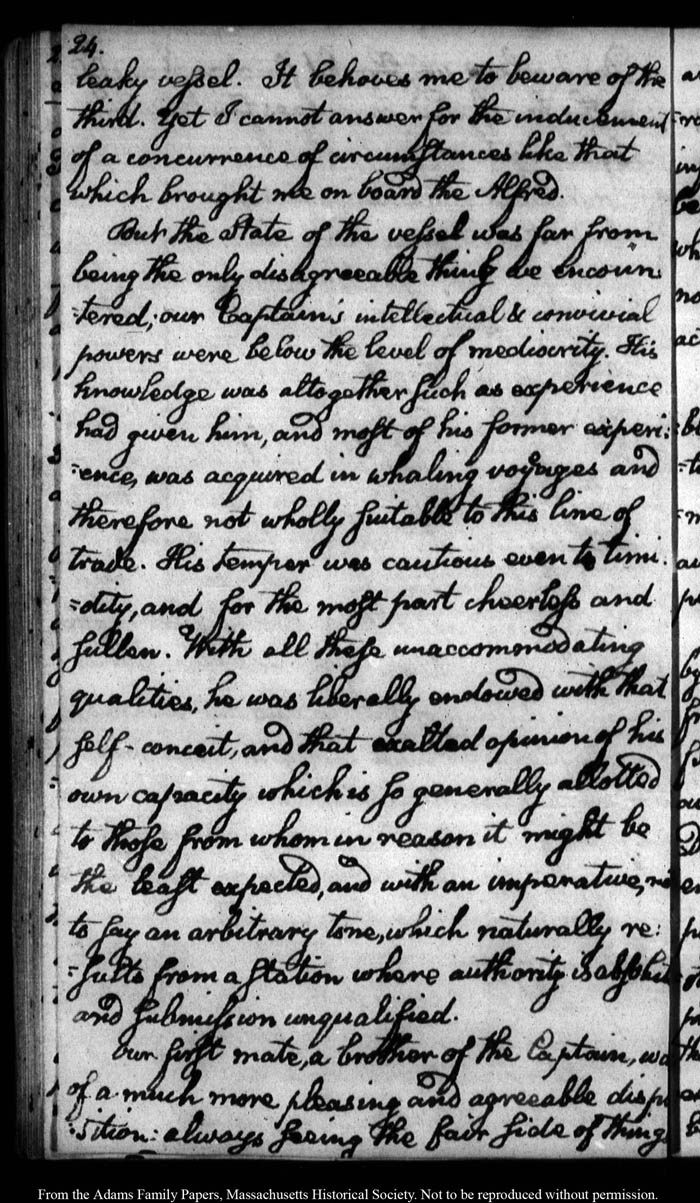 24.
leaky vessel. It behoves me to beware of the
third. Yet I cannot answer for the inducement
of a concurrence of circumstances like that
which brought me on board the Alfred.
But the State of the vessel was far from
being the only disagreeable thing we encoun
:tered; our Captain's intellectual & convivial
powers were below the level of mediocrity. His
knowledge was altogether such as experience
had given him, and most of his former experi:
:ence, was acquired in whaling voyages and
therefore not wholly suitable to this line of
trade. His temper was cautious even to timi:
:dity, and for the most part cheerless and
sullen. With all these unaccommodating
qualities, he was liberally endowed with that
self-conceit, and that exalted opinion of his
own capacity which is so generally allotted
to those from whom in reason it might be
the least expected, and with an imperative,
to say an arbitrary tone, which naturally re:
:sults from a station where authority is absolut
and submission unqualified.
Our first mate, a brother of the Captain, wa
of a much more pleasing and agreeable disp
:sition: always seeing the fair side of things
From the Adams Family Papers, Massachusetts Historical Society. Not to be reproduced without permission.